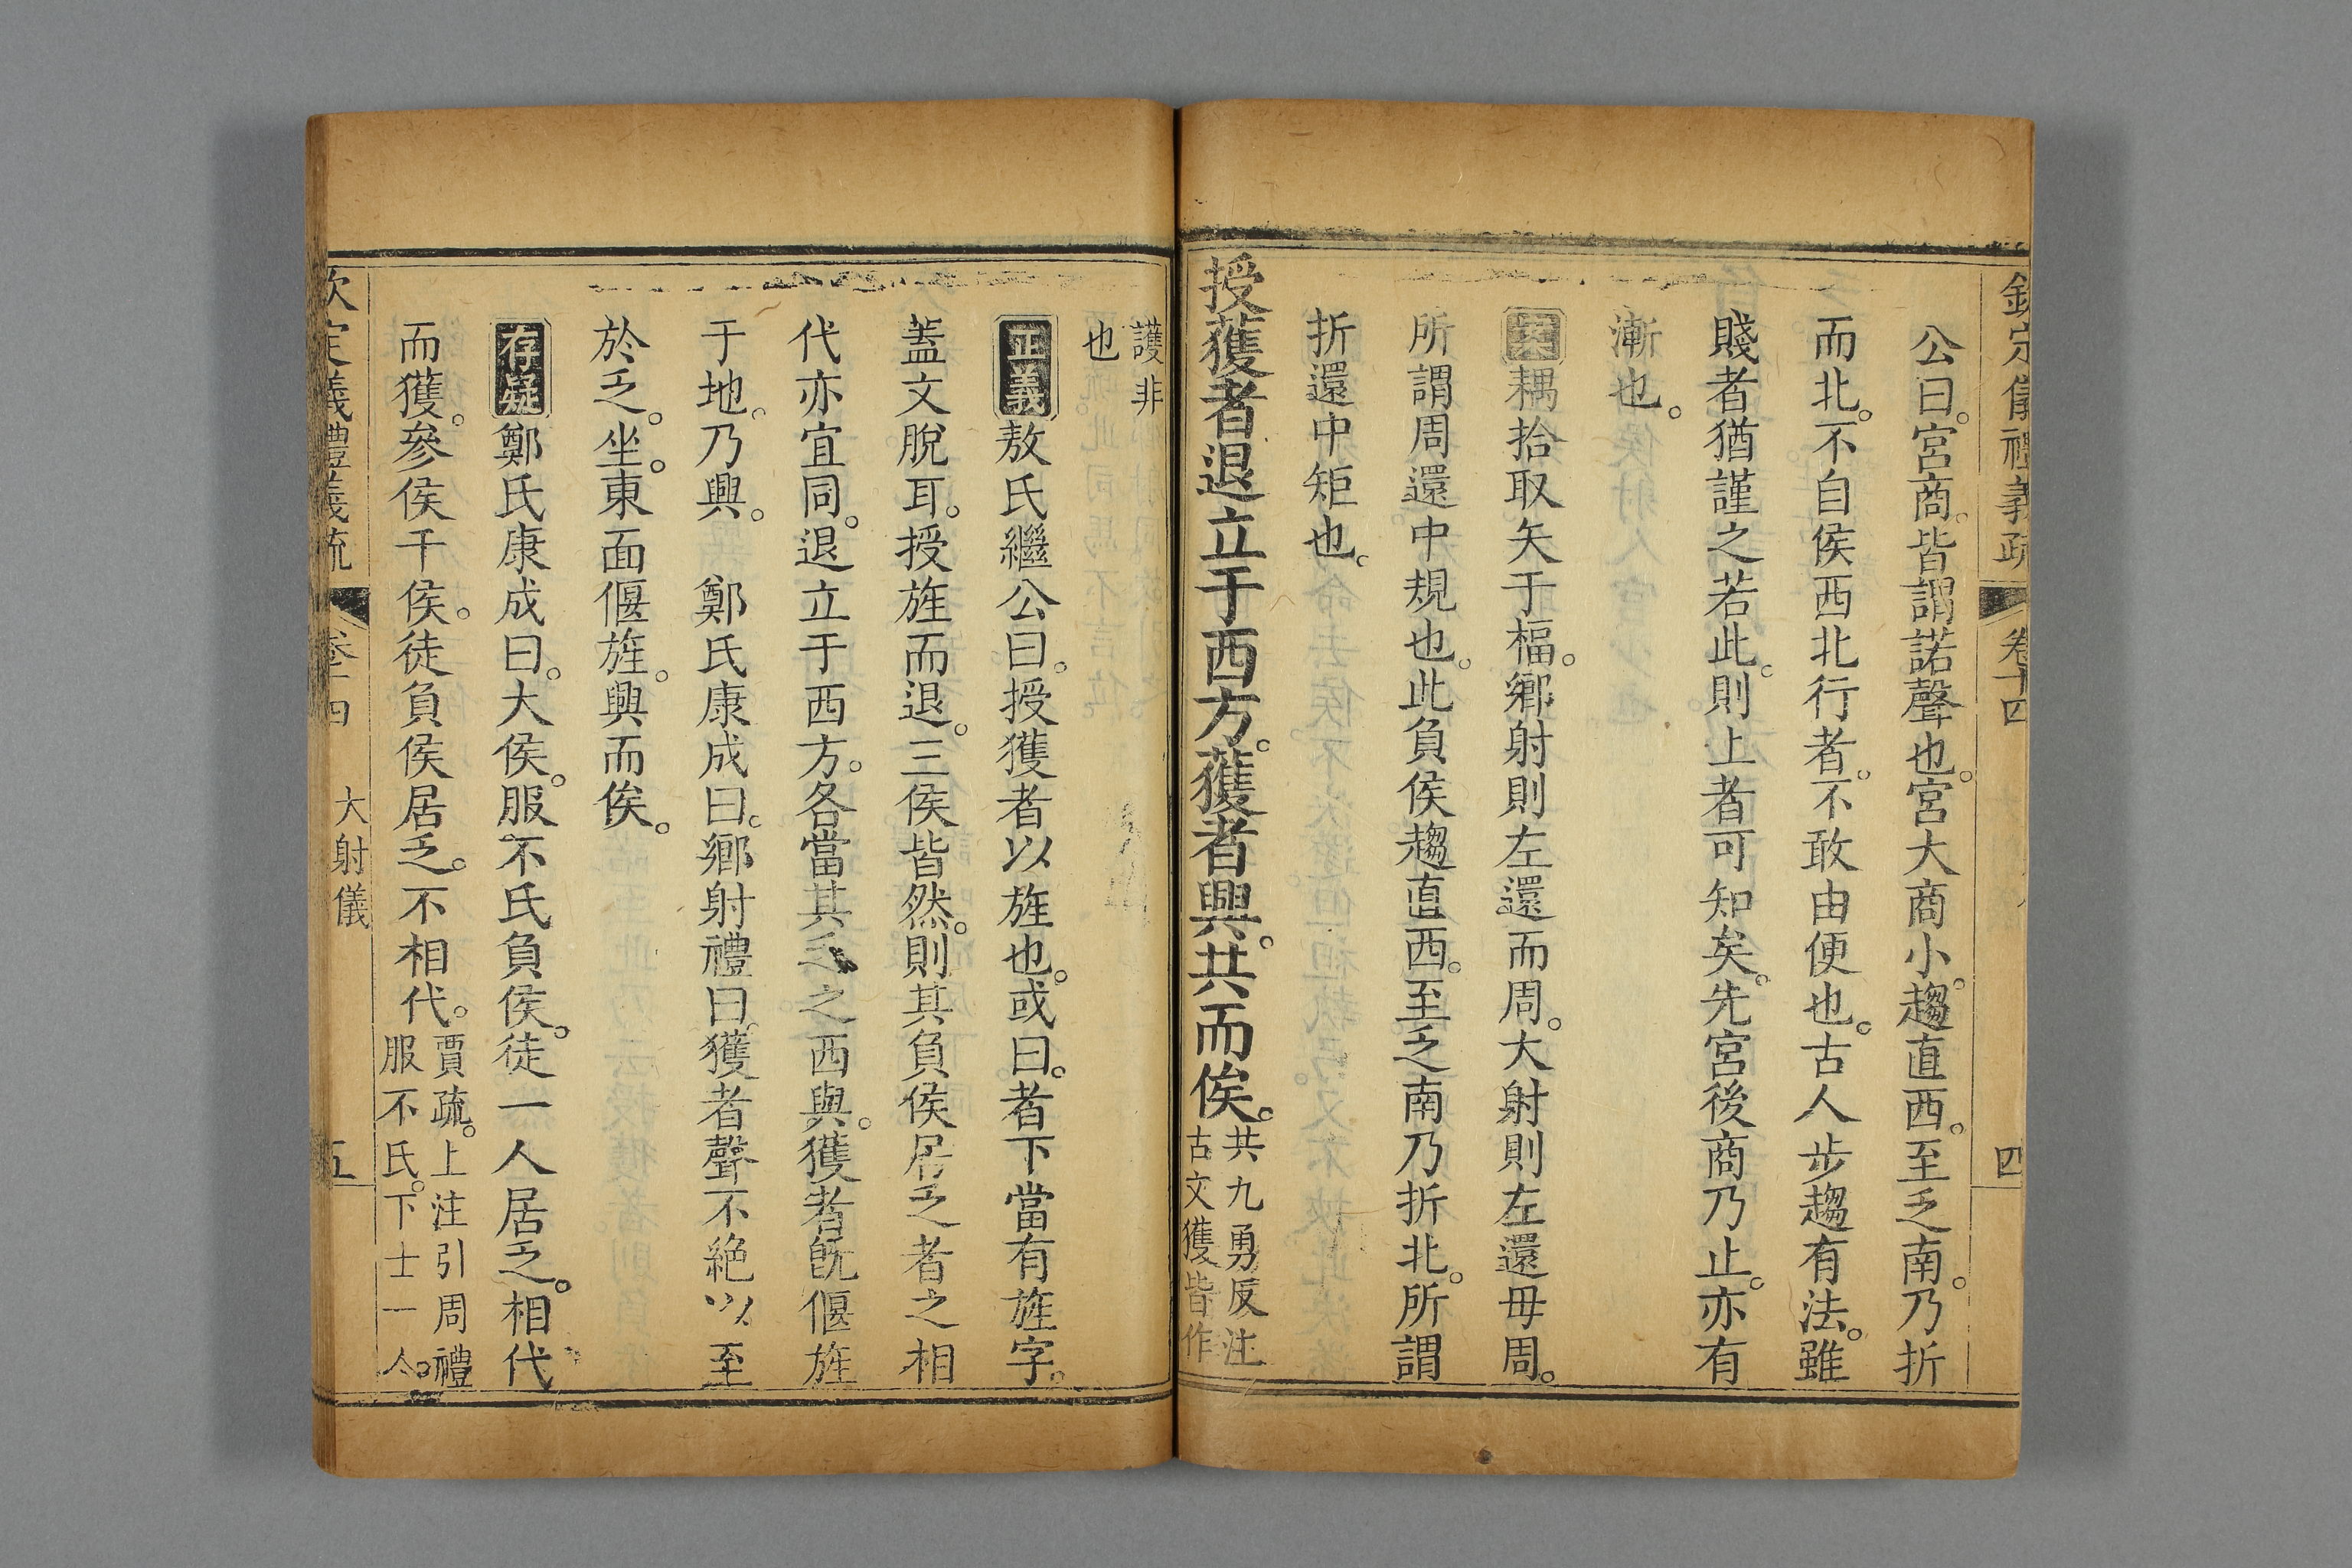 欽定儀禮義疏 卷十四 四
公曰。宮商。皆謂諾聲也。宮大商小。趨直西。至乏南。乃折
而北。不自侯西北行者。不敢由便也。古人步趨有法。雖
賤者猶謹之若此。則上者可知矣。先宮後商乃止。亦有
漸也。
耦拾取矢于楅。鄉射則左還而周。大射則左還毋周。
所謂周還中規也。此負侯趨直西。至乏南乃折北。所謂
折還中矩也。
授獲者退立于西方。獲者興。共而俟。共九勇反注
古文獲皆作
護非
也
正義敖氏繼公曰。授獲者以旌也。或曰。者下當有旌字。
蓋文脫耳。授旌而退。三侯皆然。則其負侯居乏者之相
代亦宜同。退立于西方。各當其乏之西與。獲者旣偃旌
于地。乃興。 鄭氏康成曰。鄉射禮曰。獲者聲不絶以至
於乏。坐。東面偃旌。興而俟。
存疑鄭氏康成曰。大侯。服不氏負侯。徒一人居乏。相代
而獲。參侯干侯。徒負侯居乏。不相代。賈疏。上注引周禮
服不氏。下士一人。
欽定儀禮義疏 卷十四 大射儀 五